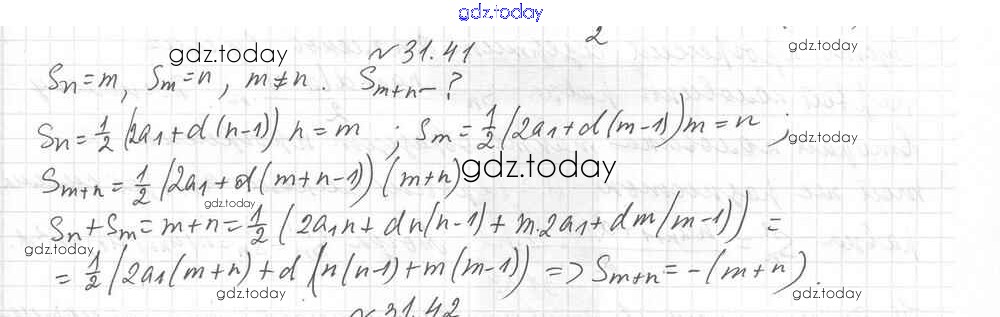 gdz.today
№31.41
gdz.today
Sn=m, Sm=n, m≠n. Sm+n-?
Sn=1/2(2a1+d(n-1))n=m; Sm=1/2(2a1+d(m-1))m=n;
gdz.today
gdz.today
Sm+n=1/2(2a1+d(m+n-1))(m+n)
gdz.today
Sn+Sm=m+n=1/2(2a1n+dn(n-1)+m·2a1+dm(m-1))=
gdz.today
gdz.today
=1/2(2a1(m+n)+d(n(n-1)+m(m-1))=>Sm+n=-(m+n).
gdz.today
gdz.today
№31.42